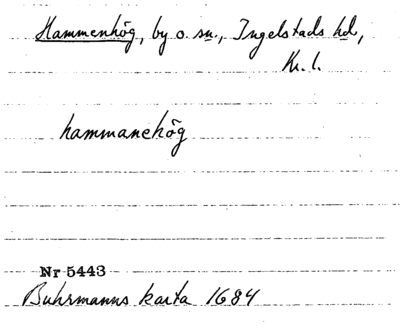 Hammenhög, by o. sn., Ingelstads hd,
Kr. l.
hammanehög
Nr 5443
Buhrmanns karta 1684